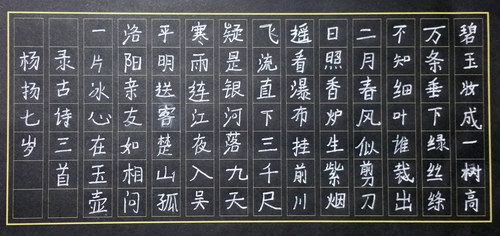 碧玉妆成一树高
万条垂下绿丝绦
不知细叶谁裁出
二月春风似剪刀
日照香炉生紫烟
遥看瀑布挂前川
飞流直下三千尺
疑是银河落九天
寒雨连江夜入吴
平明送客楚山孤
洛阳亲友如相问
一片冰心在玉壶
录古诗三首
杨扬七岁